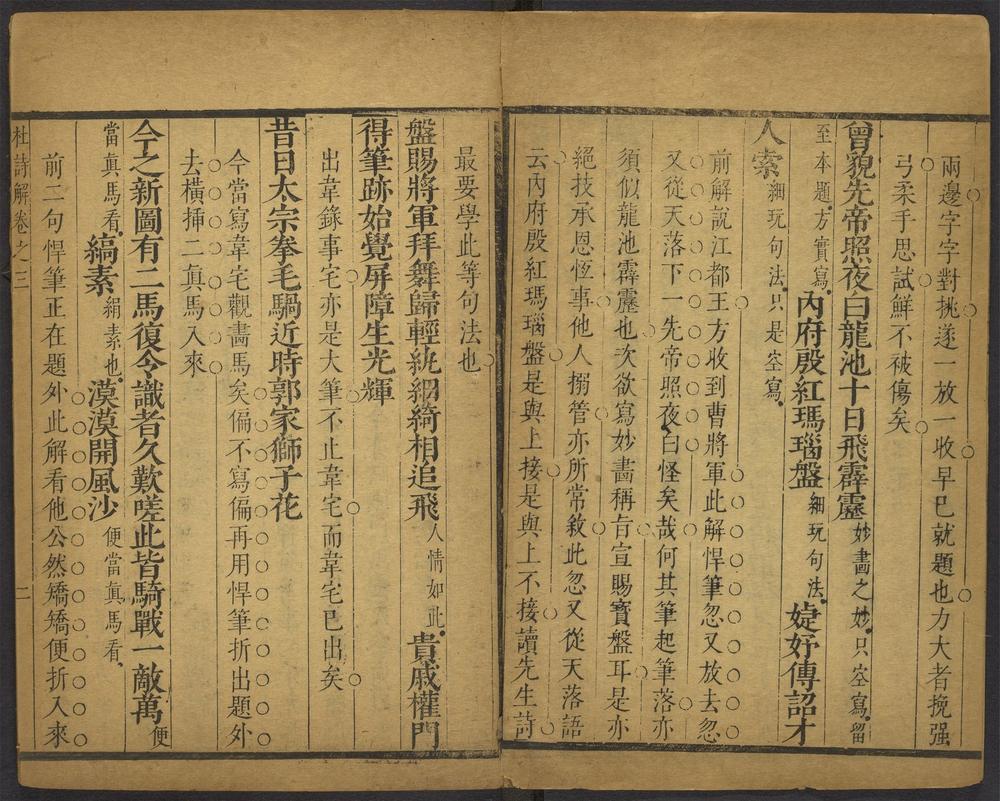 兩邊字字對挑遂一放一收早已就題也力大者挽强
弓柔手思試鮮不被傷矣
曾貌先帝照夜白龍池十日飛霹靂妙畵之妙只空寫留
至本題方實寫內府殷紅瑪瑙盤細玩句法婕妤傳詔才
人索細玩句法只是空寫
前解說江都王方收到曹將軍此解悍筆忽又放去忽
又從天落下一先帝照夜白怪矣哉何其筆起筆落亦
須似龍池霹靂也次欲寫妙畵稱旨宣賜寳盤耳是亦
絕技承恩恆事他人搦管亦所常敘此忽又從天落語
云內府殷紅瑪瑙盤是與上接是與上不接讀先生詩
最要學此等句法也
盤賜將軍拜舞歸輕紈細綺相追飛人情如此貴戚權門
得筆跡始覺屏障生光輝
出韋錄事宅亦是大筆不止韋宅而韋宅已出矣
昔日太宗拳毛騧近時郭家獅子花
今當寫韋宅觀畵馬矣偏不寫偏再用悍筆折出題外
去橫揷二眞馬入來
今之新圖有二馬復令識者久歎嗟此皆騎戰一敵萬便
當眞馬看縞素絹素也漠漠開風沙便當眞馬看
前二句悍筆正在題外此解看他公然矯矯便折入來
杜詩解卷之三
二